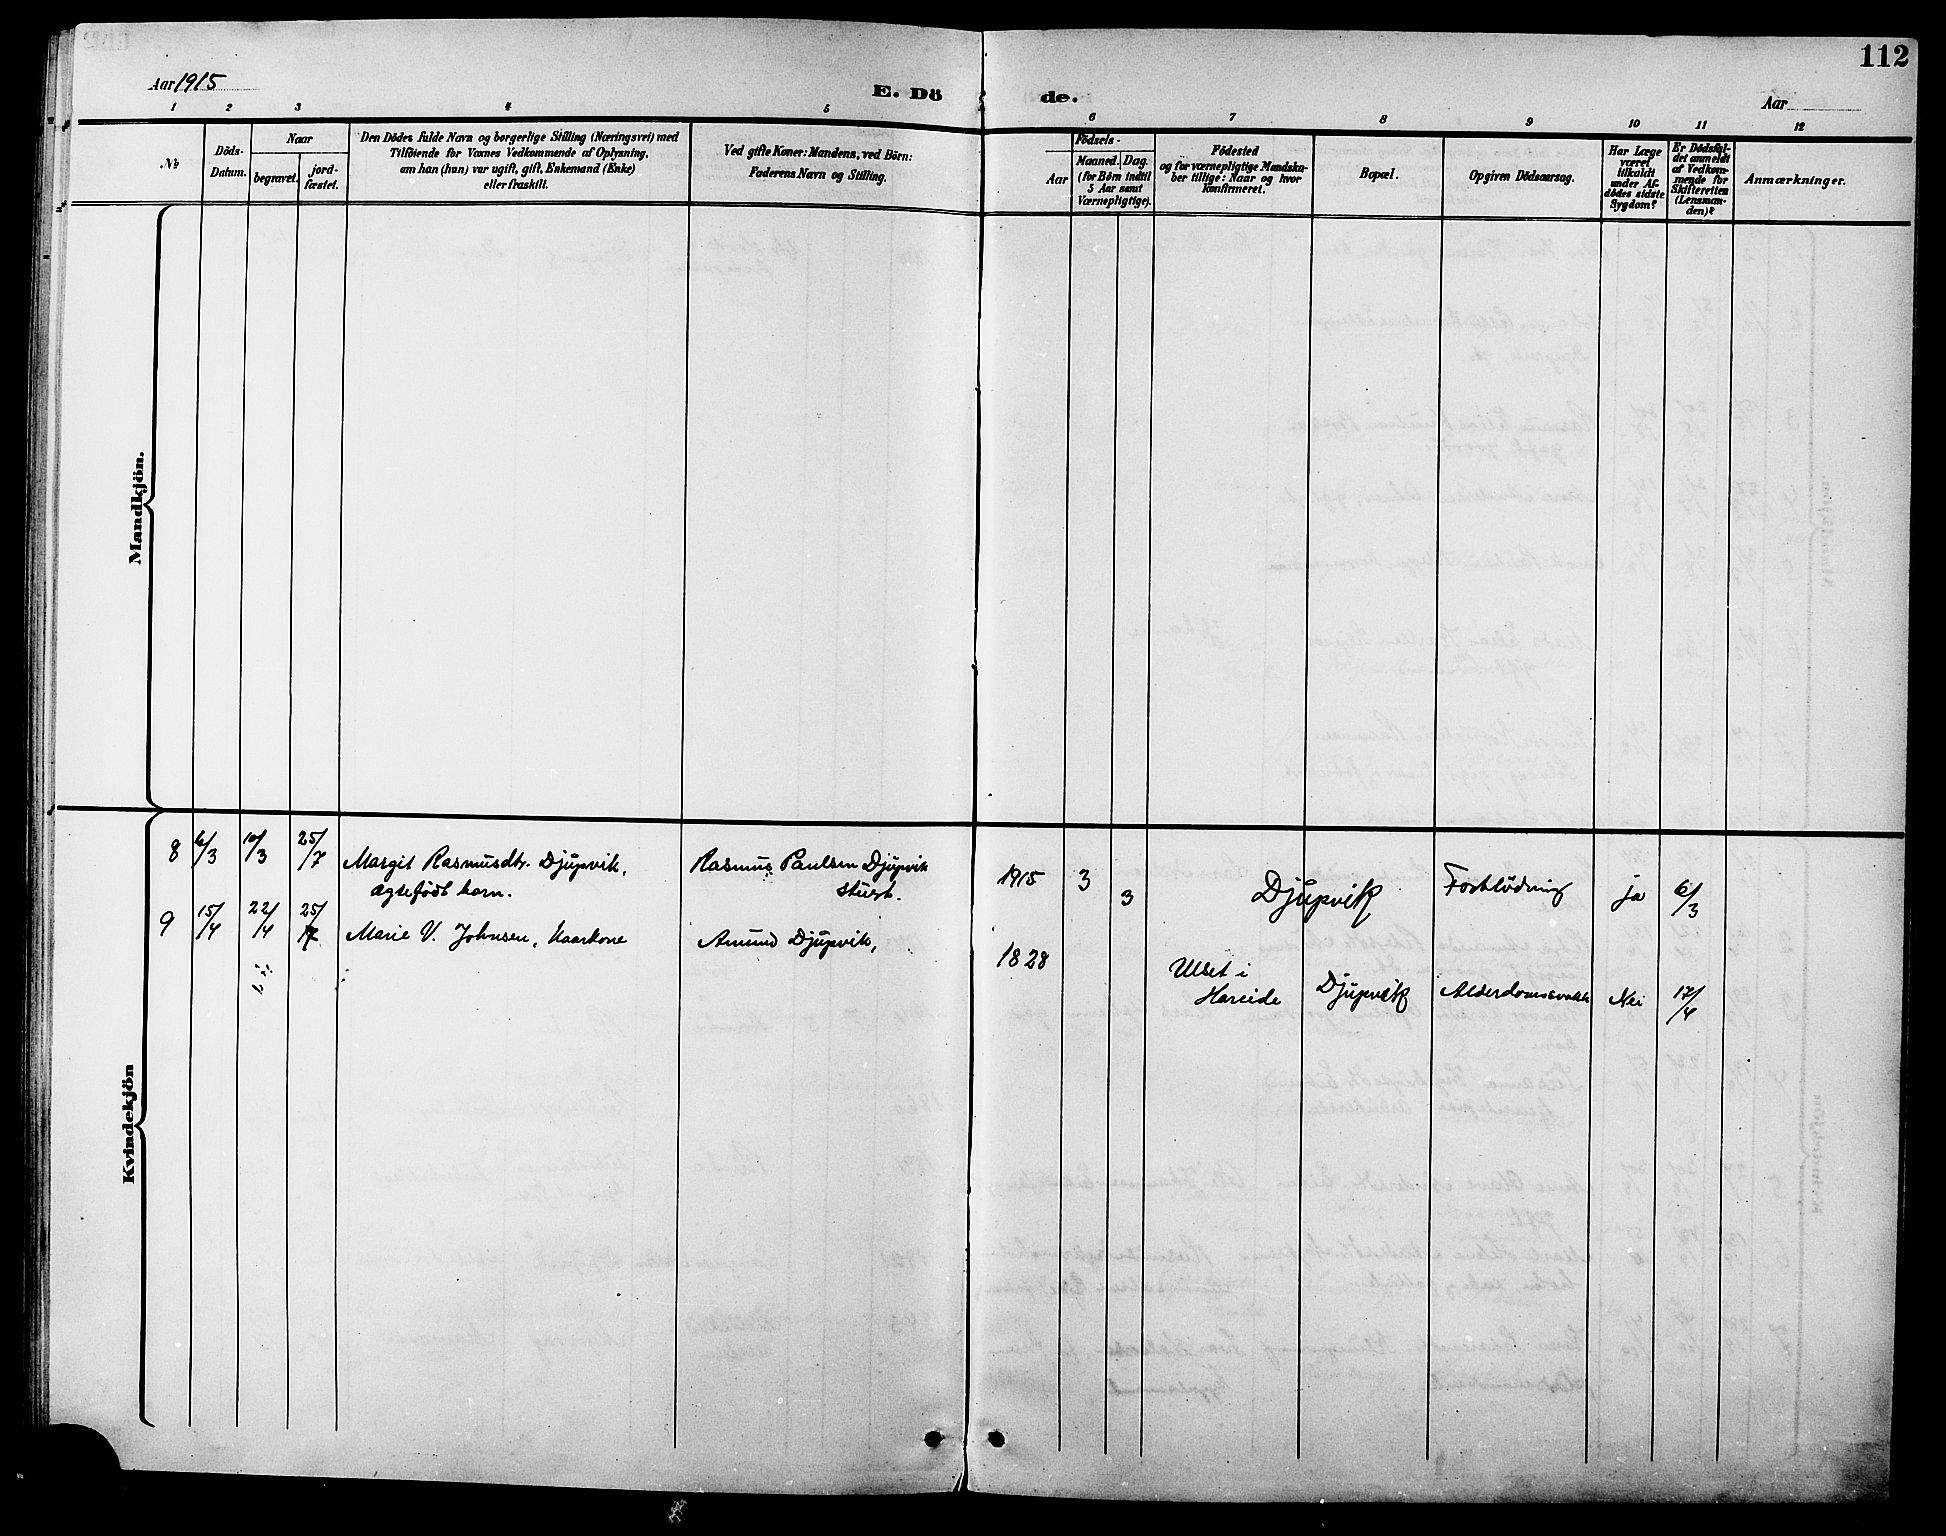 112
Aar 1915
E. Dö de.
Aar
1 2 3 4 5 6 7 8 9 10 11 12
№
Döds-
Datum.
Naar
begravet.
jord-
fæstet.
Den Dödes fulde Navn og borgerlige Stilling (Næringsvei) med
Tilföiende for Voxnes Vedkommende af Oplysning,
om han (hun) var ugift, gift, Enkemand (Enke)
eller fraskilt.
Ved gifte Koner: Mandens, ved Börn:
Faderens Navn og Stilling.
Födsels-
Aar
Maaned. Dag.
(for Börn indtil
5 Aar samt
Værnepligtige).
Födested
og for værnepligtige Mandska-
ber tillige: Naar og hvor
konfirmeret.
Bopæl.
Opgiven Dödsaarsag.
Har Læge
været
tilkaldt
under Af-
dödes sidste
Sygdom?
Er Dödsfal-
det anmeldt
af Vedkom-
mende for
Skifteretten
(Lensman-
den)?
Anmærkninger.
Mandkjön.
Kvindekjön
8 6/3 10/3 25/7 Margit Rasmusdtr. Djupvik, Rasmus Paulsen Djupvik 1915 3 3 Djupvik Forblödning ja 6/3
ægtefödt barn.
9 15/4 22/4 25/7 Marie V. Johnsen, kaarkone Amund Djupvik, 1828 Ulset i
Hareide Djupvik Nei 17/4